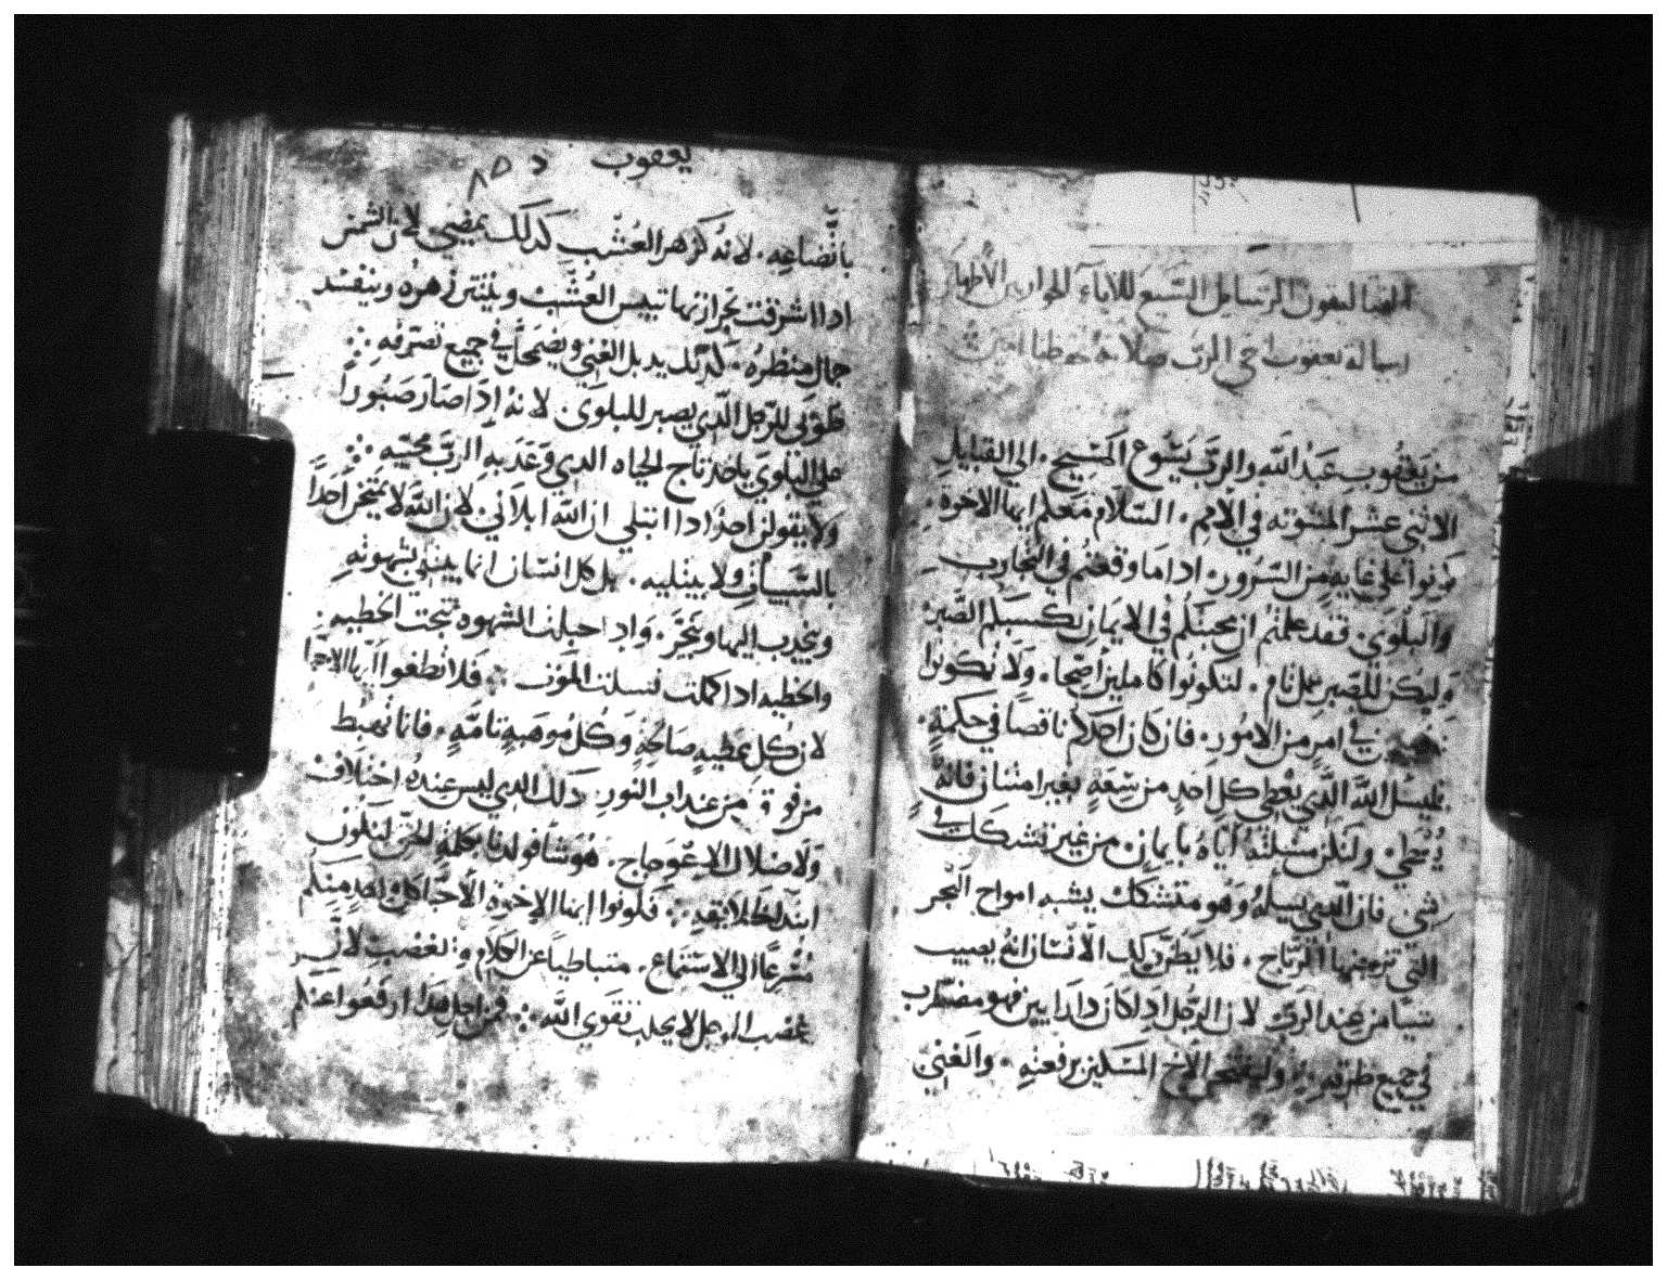 القتاليقون الرسايل السبع للاباء الحواريين الاطهار
رسالة يعقوب اخي الرب صلاته تحفظنا امين
من يَعْقُوب عَبْد اللَّه والرَّب يَسُوع المَسِيح. الي القبايل
الاثني عشر المبثوثه في الامم. السلام معلم ايها الاخوة.
كونوا علي غايه من السرور. اذا ما وقعتم في التجارب
والبلوي. فقد علمتم ان محبتكم في الايمان تكسبكم الصبر
وليكن للصبر عمل تام. لتكونوا كاملين اصحا. ولا تكونوا
في امر من الامور. فان كان احدكم ناقصا في حكمة
فليسل الله الذي يعطي كل احد من سعة بغير امتنان فانه
يعطي ولتكن مسلته اياه بايمان. من غير تشكك في
شي فان الذي يسيله وهو متشكك يشبه امواج البحر
التي تزعجها الرياح. فلا يظن ذلك الانسان انه يصيب
شيا من عند الرب لان الرجل اذا كان ذا رايين فهو مضطرب
في جميع طرقه وليفتخر الاخ المسكين برفعته. والغني
يعقوب
باتضاعه. لانه كزهر العشب كذلك يمضي لان الشمس
اذا اشرقت بحرارتها تيبس العشب وينتثر زهره ويفسد
جمال منظره. كذلك يدبل الغني ويضمحل في جميع تصرفه
طوبي للرجل الذي يصبر للبلوي. لانه اذا صار صبورا
علي البلوي ياخذ تاج الحياه الذي وعد به الرب محبيه
ولا يقولن احد اذا ابتلي ان الله ابلاني. لان الله لا يمتحن احدا
بالسيات ولا يبتليه. بل كل انسان انما يبتلي بشهوته
وينجذب اليها وينجر. واذا حبلت الشهوه نتجت الخطيه
والخطيه اذا كملت نسلت الموت فلا تطغوا ايها الاحبا
لان كل عطيه صالحة وكل موهبة تامة. فانما تهبط
من فوق من عند اب النور. ذلك الذي ليس عنده اختلاف
ولا ضلال الاعوجاج. هو شا فولدنا بكلمة الحق لنكون
ابتدا لخلايقه فكونوا ايها الاخوة الاحبا كل احد منكم
مسرعا الي الاستماع. متباطيا عن الكلام والغضب لان
غضب الرجل لا يجلب تقوي الله فمن اجل هذا ارفعوا عنكم